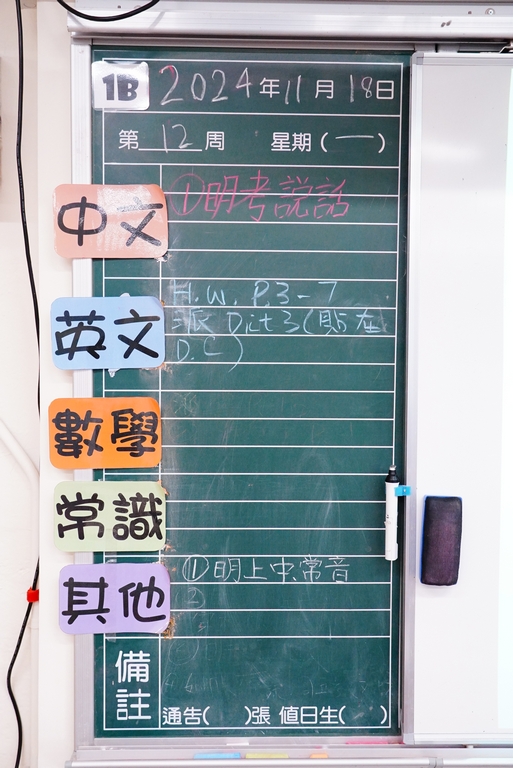 1B 2024年11月18日
第12周 星期(一)
中文 ①明考説話
英文 H.W. P.3-7
派 Dict 3(貼在
D.C)
數學
常識
其他 ⑪明上中常音
備註 通告( )張 值日生( )